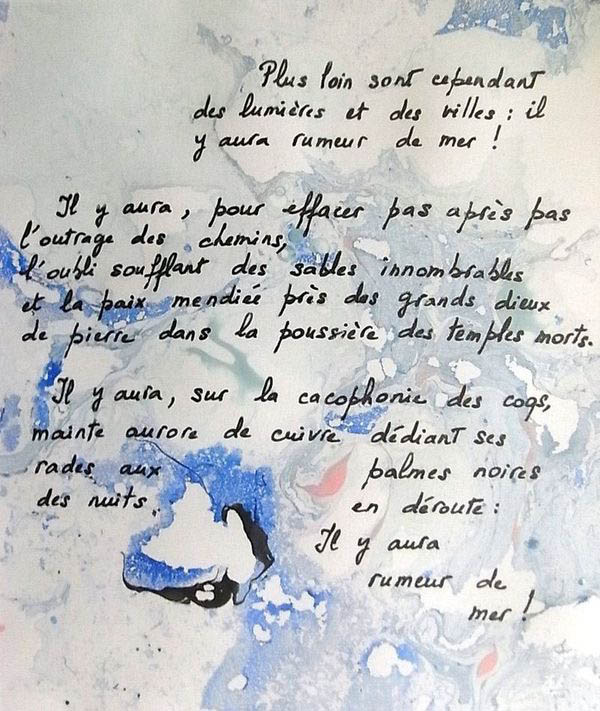 Plus loin sont cependant
des lumières et des villes : il
y aura rumeur de mer !
Il y aura, pour effacer pas après pas
l'outrage des chemins,
l'oubli soufflant des sables innombrables
et la paix mendiée près des grands dieux
de pierre dans la poussière des temples morts.
Il y aura, sur la cacophonie des coqs,
mainte aurore de cuivre dédiant ses
rades aux palmes noires
des nuits en déroute :
Il y aura
rumeur de
mer !